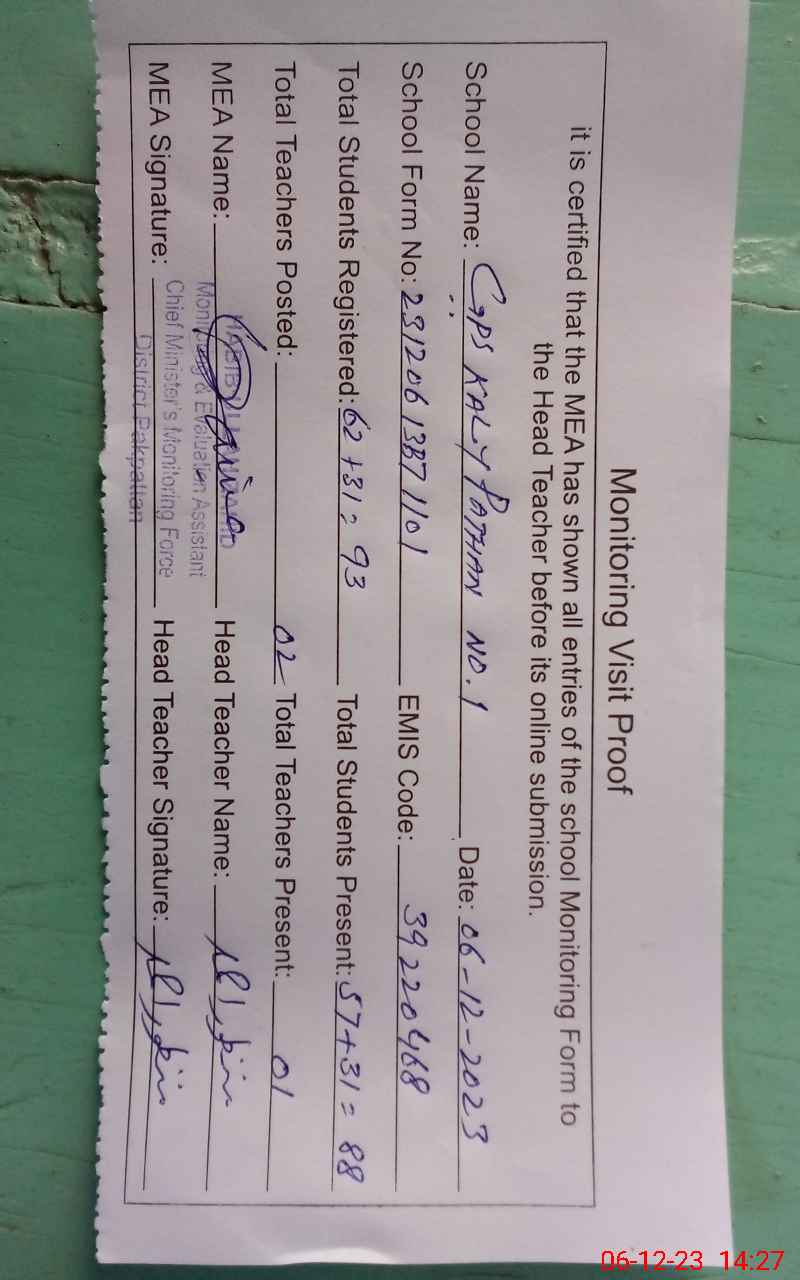 Monitoring Visit Proof
it is certified that the MEA has shown all entries of the school Monitoring Form to
the Head Teacher before its online submission.
School Name: GPS KALY PATHAN NO.1 Date: 06-12-2023
School Form No: 2312061387 1101 EMIS Code: 39220468
Total Students Registered: 62+31=93 Total Students Present: 57+31=88
Total Teachers Posted: 02 Total Teachers Present: 01
MEA Name: Head Teacher Name:
Monitoring & Evaluation Assistant
Chief Minister's Monitoring Force
MEA Signature: Head Teacher Signature:
District Pakpattan
06-12-23 14:27